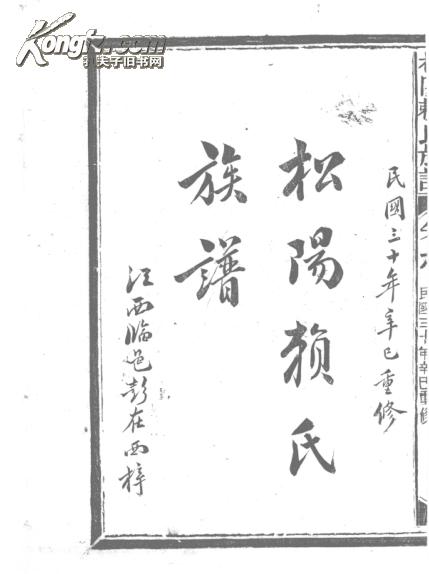 Kongfz.com
孔夫子旧书网
松陽賴氏族譜
民國三十年辛巳重修
民國三十年辛巳重修
松陽賴氏
族譜
江西臨邑彭在西梓